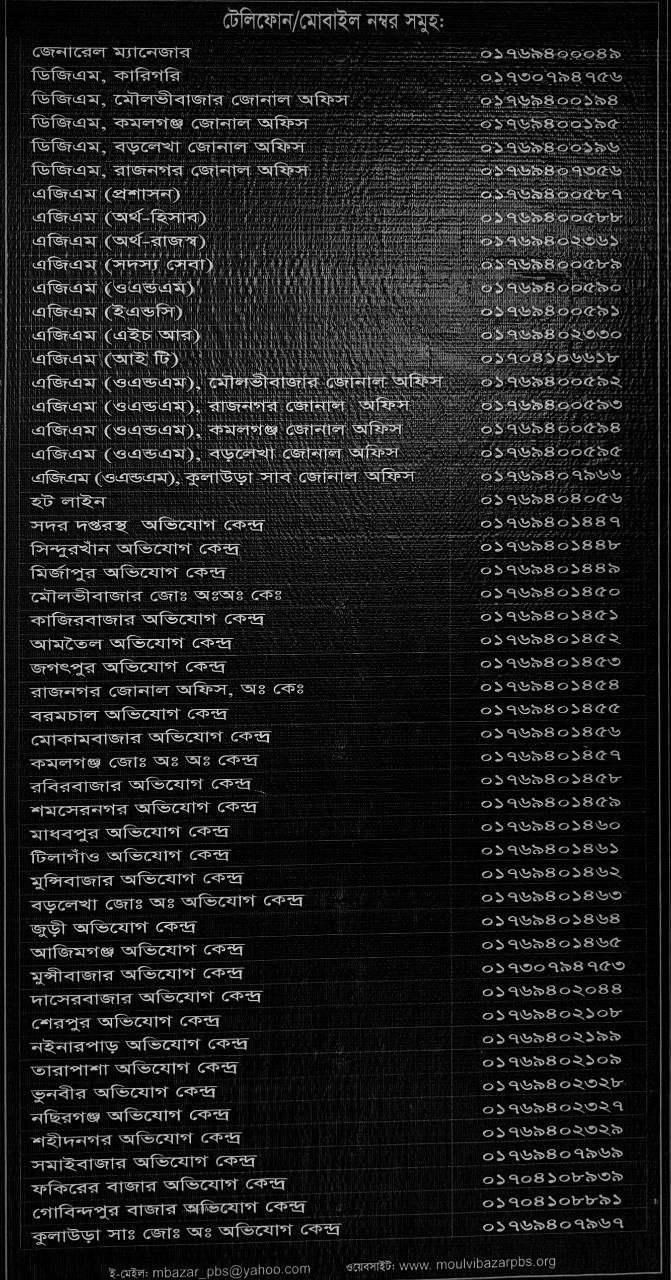 টেলিফোন/মোবাইল নম্বর সমুহঃ
জেনারেল ম্যানেজার ০১৭৬৯৪০০০৪৯
ডিজিএম, কারিগরি ০১৭৩০৭৯৪৭৫৬
ডিজিএম, মৌলভীবাজার জোনাল অফিস ০১৭৬৯৪০০১৯৪
ডিজিএম, কমলগঞ্জ জোনাল অফিস ০১৭৬৯৪০০১৯৫
ডিজিএম, বড়লেখা জোনাল অফিস ০১৭৬৯৪০০১৯৬
ডিজিএম, রাজনগর জোনাল অফিস ০১৭৬৯৪০৭৩৫৬
এজিএম (প্রশাসন) ০১৭৬৯৪০০৫৮৭
এজিএম (অর্থ-হিসাব) ০১৭৬৯৪০০৫৮৮
এজিএম (অর্থ-রাজস্ব) ০১৭৬৯৪০২৩৬১
এজিএম (সদস্য সেবা) ০১৭৬৯৪০০৫৮৯
এজিএম (ওএন্ডএম) ০১৭৬৯৪০০৫৯০
এজিএম (ইএন্ডসি) ০১৭৬৯৪০০৫৯১
এজিএম (এইচ আর) ০১৭৬৯৪০২৩৩০
এজিএম (আই টি) ০১৭০৪১০৬৬১৮
এজিএম (ওএন্ডএম), মৌলভীবাজার জোনাল অফিস ০১৭৬৯৪০০৫৯২
এজিএম (ওএন্ডএম), রাজনগর জোনাল অফিস ০১৭৬৯৪০০৫৯৩
এজিএম (ওএন্ডএম), কমলগঞ্জ জোনাল অফিস ০১৭৬৯৪০০৫৯৪
এজিএম (ওএন্ডএম), বড়লেখা জোনাল অফিস ০১৭৬৯৪০০৫৯৫
এজিএম (ওএন্ডএম), কুলাউড়া সাব জোনাল অফিস ০১৭৬৯৪০৭৯৬৬
হট লাইন ০১৭৬৯৪০৪০৫৬
সদর দপ্তরস্থ অভিযোগ কেন্দ্র ০১৭৬৯৪০১৪৪৭
সিন্দুরখাঁন অভিযোগ কেন্দ্র ০১৭৬৯৪০১৪৪৮
মির্জাপুর অভিযোগ কেন্দ্র ০১৭৬৯৪০১৪৪৯
মৌলভীবাজার জোঃ অঃঅঃ কেঃ ০১৭৬৯৪০১৪৫০
কাজিরবাজার অভিযোগ কেন্দ্র ০১৭৬৯৪০১৪৫১
আমতৈল অভিযোগ কেন্দ্র ০১৭৬৯৪০১৪৫২
জগৎপুর অভিযোগ কেন্দ্র ০১৭৬৯৪০১৪৫৩
রাজনগর জোনাল অফিস, অঃ কেঃ ০১৭৬৯৪০১৪৫৪
বরমচাল অভিযোগ কেন্দ্র ০১৭৬৯৪০১৪৫৫
মোকামবাজার অভিযোগ কেন্দ্র ০১৭৬৯৪০১৪৫৬
কমলগঞ্জ জোঃ অঃ অঃ কেন্দ্র ০১৭৬৯৪০১৪৫৭
রবিরবাজার অভিযোগ কেন্দ্র ০১৭৬৯৪০১৪৫৮
শমসেরনগর অভিযোগ কেন্দ্র ০১৭৬৯৪০১৪৫৯
মাধবপুর অভিযোগ কেন্দ্র ০১৭৬৯৪০১৪৬০
টিলাগাঁও অভিযোগ কেন্দ্র ০১৭৬৯৪০১৪৬১
মুন্সিবাজার অভিযোগ কেন্দ্র ০১৭৬৯৪০১৪৬২
বড়লেখা জোঃ অঃ অভিযোগ কেন্দ্র ০১৭৬৯৪০১৪৬৩
জুড়ী অভিযোগ কেন্দ্র ০১৭৬৯৪০১৪৬৪
আজিমগঞ্জ অভিযোগ কেন্দ্র ০১৭৬৯৪০১৪৬৫
মুন্সীবাজার অভিযোগ কেন্দ্র ০১৭৩০৭৯৪৭৫৩
দাসেরবাজার অভিযোগ কেন্দ্র ০১৭৬৯৪০২০৪৪
শেরপুর অভিযোগ কেন্দ্র ০১৭৬৯৪০২১০৮
নইনারপাড় অভিযোগ কেন্দ্র ০১৭৬৯৪০২১৯৯
তারাপাশা অভিযোগ কেন্দ্র ০১৭৬৯৪০২১০৯
ভুনবীর অভিযোগ কেন্দ্র ০১৭৬৯৪০২৩২৮
নছিরগঞ্জ অভিযোগ কেন্দ্র ০১৭৬৯৪০২৩২৭
শহীদনগর অভিযোগ কেন্দ্র ০১৭৬৯৪০২৩২৯
সমাইবাজার অভিযোগ কেন্দ্র ০১৭৬৯৪০৭৯৬৯
ফকিরের বাজার অভিযোগ কেন্দ্র ০১৭০৪১০৮৯৩৯
গোবিন্দপুর বাজার অভিযোগ কেন্দ্র ০১৭০৪১০৮৮৯১
কুলাউড়া সাঃ জোঃ অঃ অভিযোগ কেন্দ্র ০১৭৬৯৪০৭৯৬৭
ই-মেইলঃ mbazar_pbs@yahoo.com ওয়েবসাইটঃ www. moulvibazarpbs.org